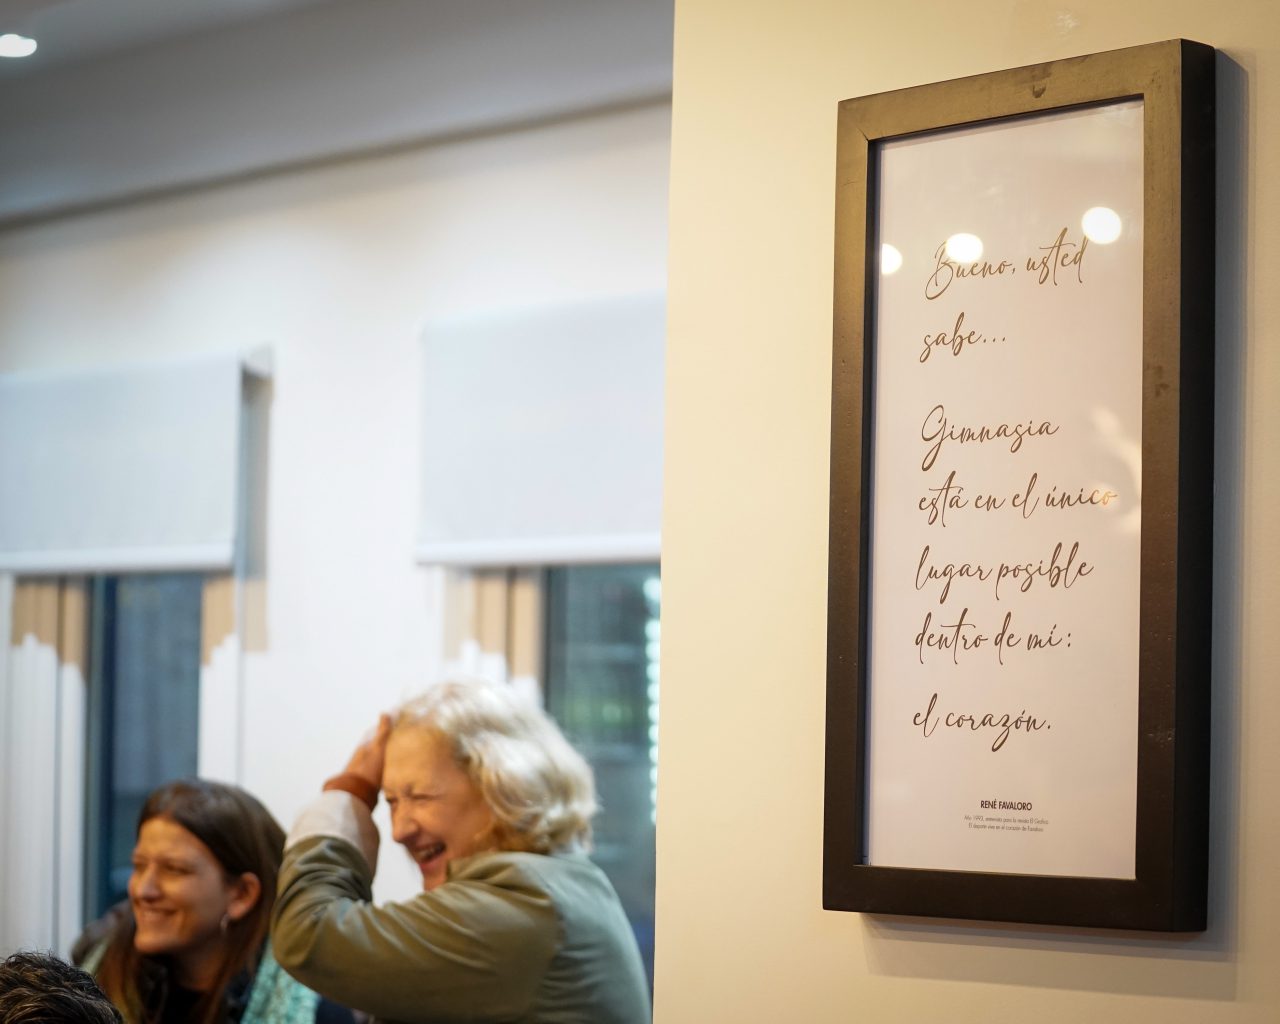 Bueno, usted
sabe...
Gimnasia
está en el único
lugar posible
dentro de mí:
el corazón.
RENÉ FAVALORO
Año 1993, entrevista para la revista El Gráfico
El deporte vive en el corazón de Favaloro